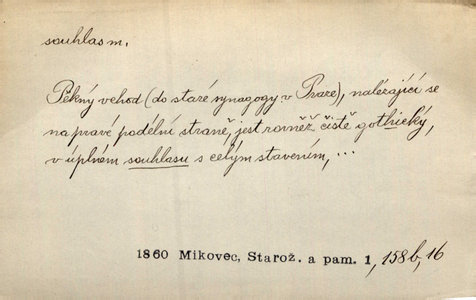 souhlas m.
Pěkný vchod (do staré synagogy v Praze), nalézající se
na pravé podélní straně, jest rovněž čistě gothický,
v úplném souhlasu s celým stavením, ...
1860 Mikovec, Starož. a pam. 1, 158b, 16